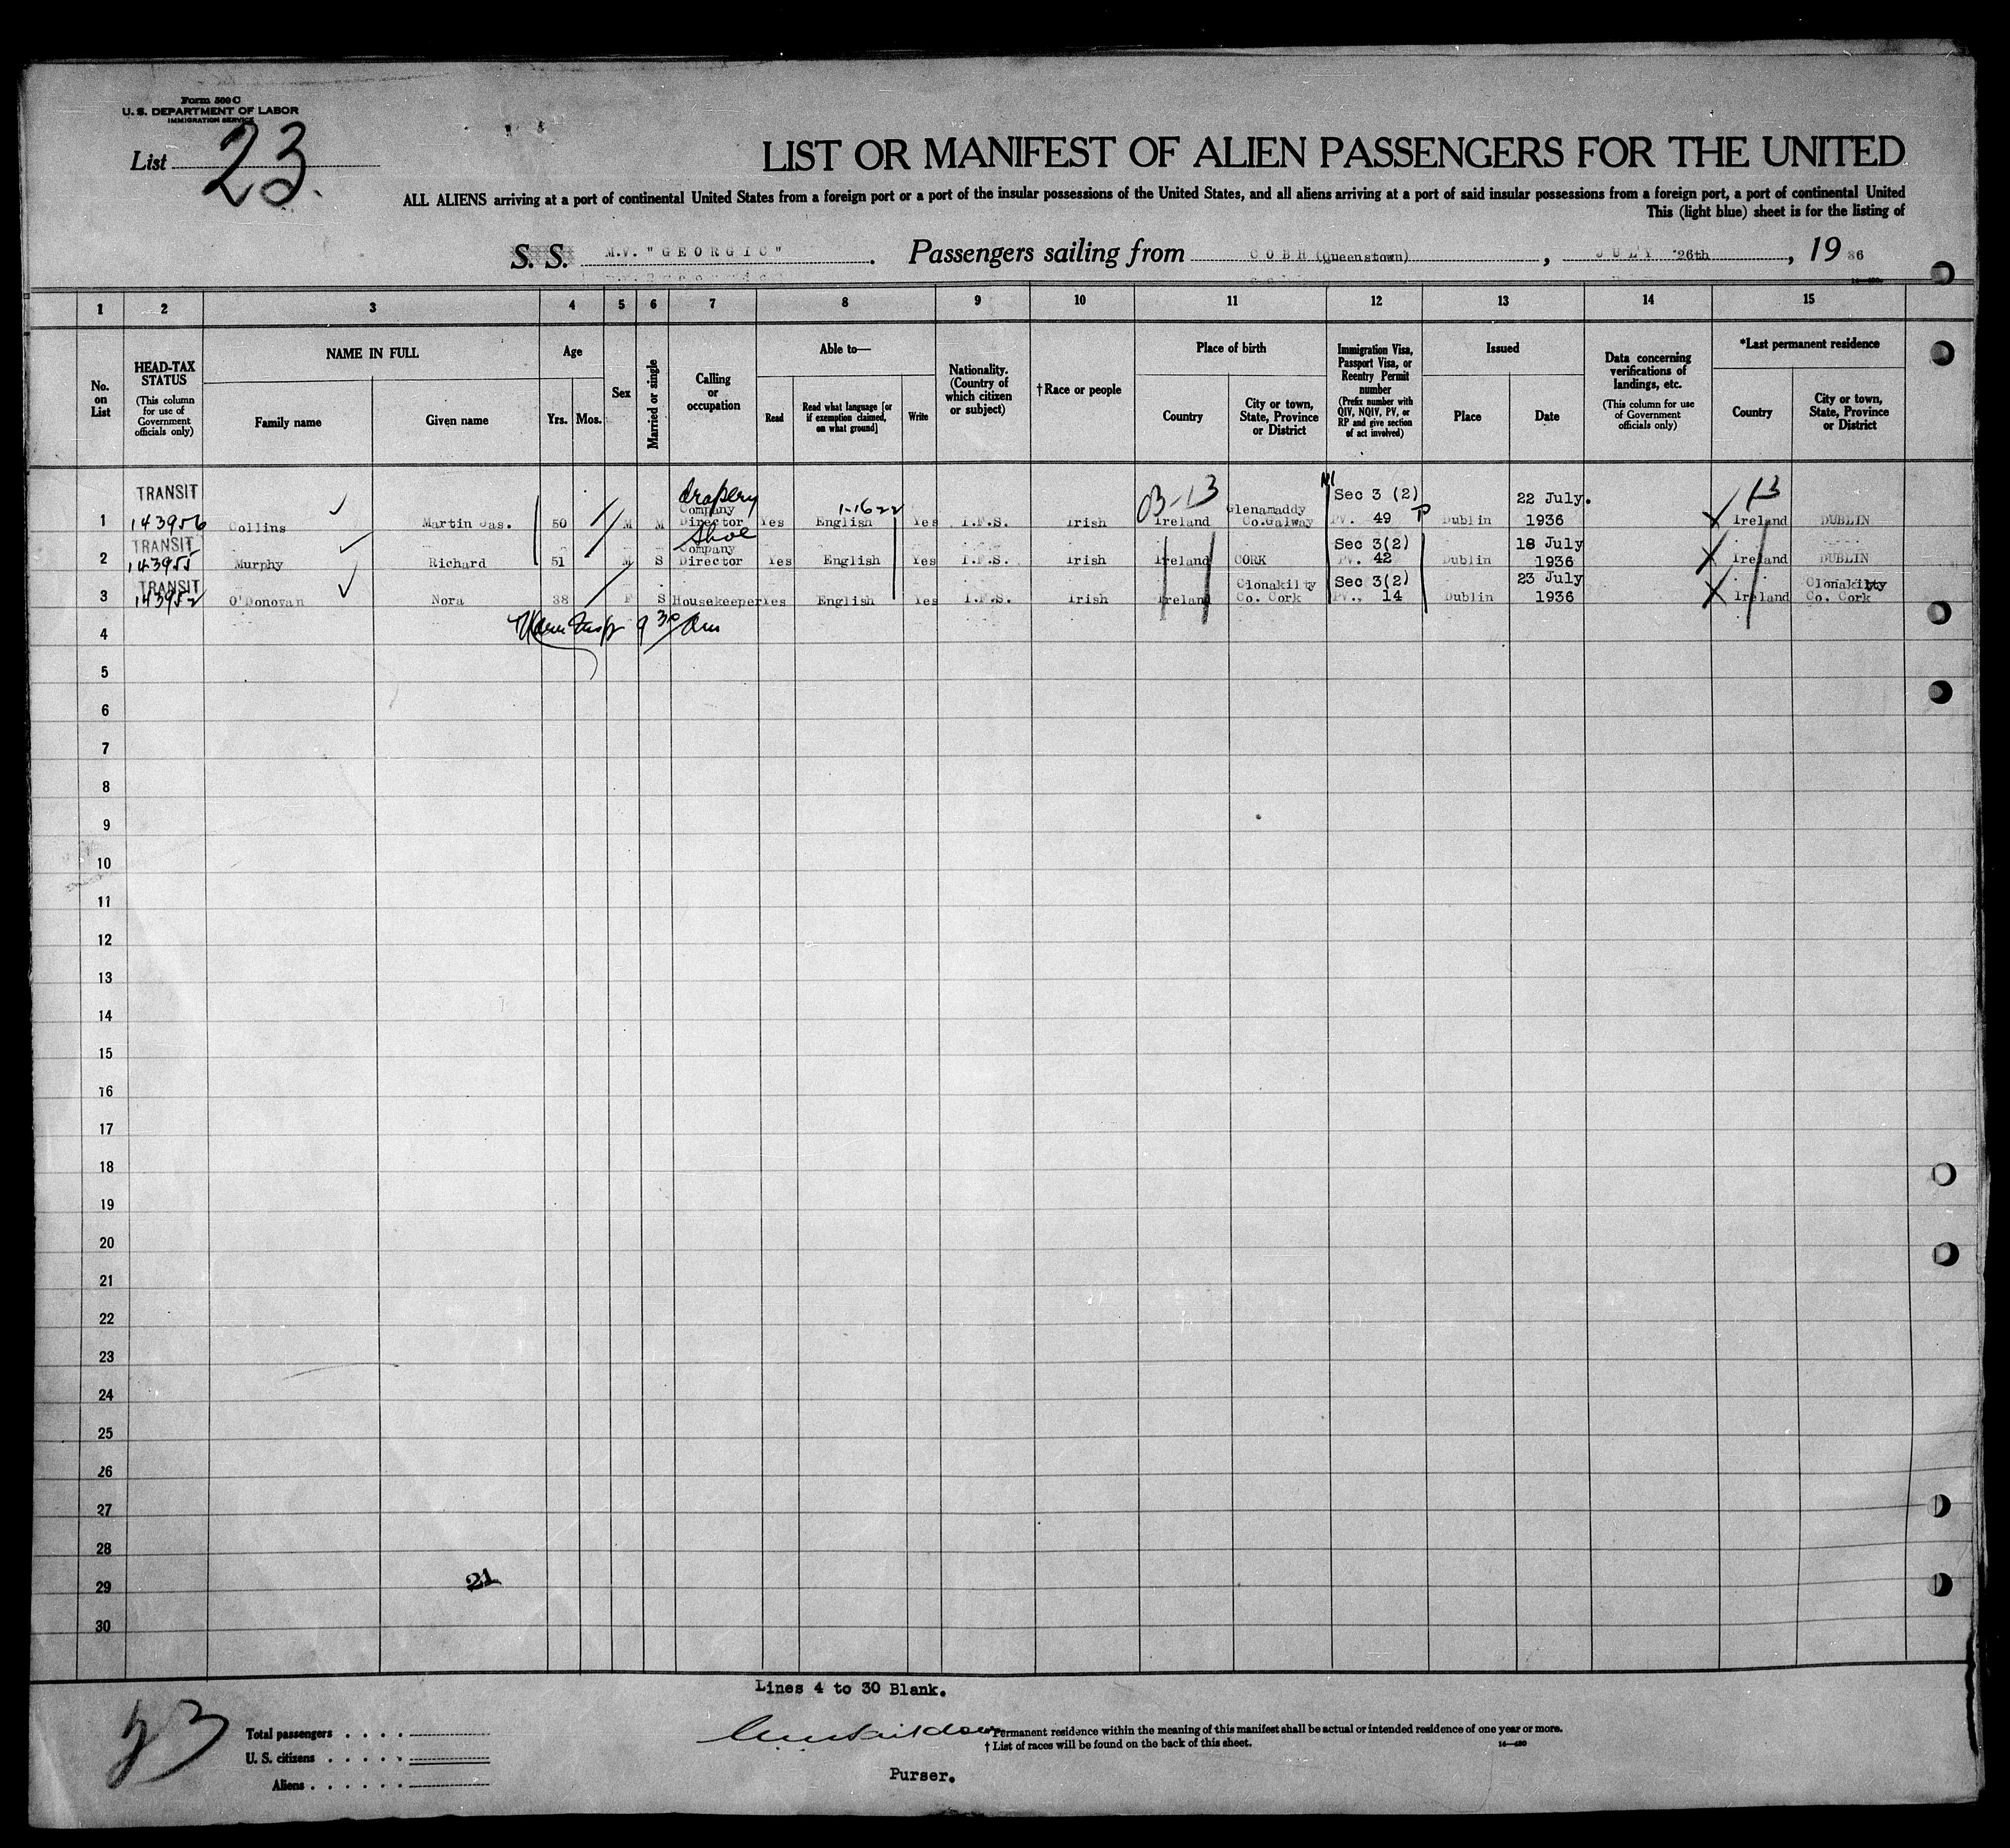 Form 500 C
U. S. DEPARTMENT OF LABOR
IMMIGRATION SERVICE
List 23.
LIST OR MANIFEST OF ALIEN PASSENGERS FOR THE UNITED
ALL ALIENS arriving at a port of continental United States from a foreign port or a port of the insular possessions of the United States, and all aliens arriving at a port of said insular possessions from a foreign port, a port of continental United
This (light blue) sheet is for the listing of
S. S. M.V. "GEORGIC". Passengers sailing from COBH (Queenstown), JULY 26th, 1936
1 2 3 4 5 6 7 8 9 10 11 12 13 14 15
No. on List
HEAD-TAX STATUS
(This column for use of Government officials only)
NAME IN FULL
Family name
Given name
Age
Yrs.
Mos.
Sex
Married or single
Calling or occupation
Able to—
Read
Read what language [or if exemption claimed, on what ground]
Write
Nationality. (Country of which citizen or subject)
†Race or people
Place of birth
Country
City or town, State, Province or District
Immigration Visa, Passport Visa, or Reentry Permit number
(Prefix number with QIV, NQIV, PV, or RP and give section of act involved)
Issued
Place
Date
Data concerning verifications of landings, etc.
(This column for use of Government officials only)
*Last permanent residence
Country
City or town, State, Province or District
TRANSIT drapery 1-16-22 03-13 Sec 3 (2) 22 July. 13
Company Glenamaddy
1 143956 Collins Martin Jas. 50 M M Director Yes English Yes I.F.S. Irish Ireland Co.Galway PV. 49 P Dublin 1936 X Ireland DUBLIN
TRANSIT Shoe Company Sec 3(2) 18 July
2 143955 Murphy Richard 51 M S Director Yes English Yes I.F.S. Irish Ireland CORK PV. 42 Dublin 1936 X Ireland DUBLIN
TRANSIT Clonakilty Sec 3(2) 23 July Clonakilty
3 143952 O'Donovan Nora 38 F S Housekeeper Yes English Yes I.F.S. Irish Ireland Co. Cork PV.. 14 Dublin 1936 X Ireland Co. Cork
4 9 30 am
5
6
7
8
9
10
11
12
13
14
15
16
17
18
19
20
21
22
23
24
25
26
27
28
29 21
30
Lines 4 to 30 Blank.
23
Total passengers . . . .
U. S. citizens . . . . .
Aliens . . . . . .
*Permanent residence within the meaning of this manifest shall be actual or intended residence of one year or more.
† List of races will be found on the back of this sheet.
Purser.